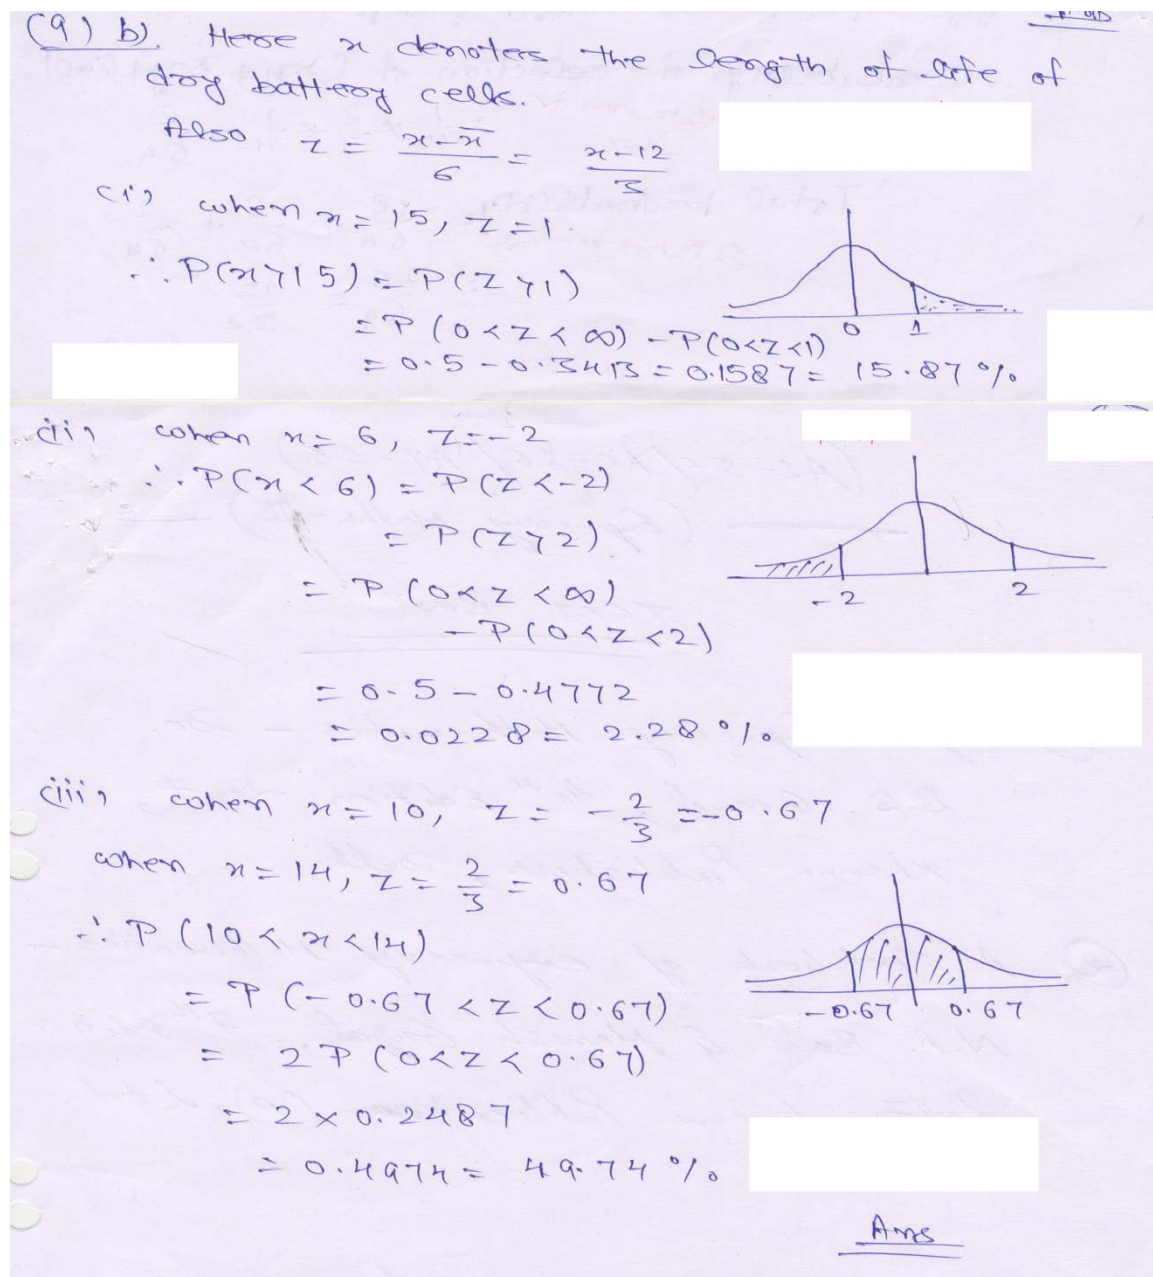 (9) b). Here x denotes the length of life of
dry battery cells.
Also z = x-x̅/σ = x-12/3
(i) when x = 15, z = 1.
∴ P(x>15) = P(Z>1)
= P(0<Z<∞) - P(0<Z<1)
= 0.5 - 0.3413 = 0.1587 = 15.87 %
0 1
(ii) when x = 6, Z = -2
∴ P(x < 6) = P(Z < -2)
= P(Z>2)
= P(0<Z<∞)
- P(0<Z<2)
= 0.5 - 0.4772
= 0.0228 = 2.28 %
-2 2
(iii) when x = 10, Z = -2/3 = -0.67
when x = 14, Z = 2/3 = 0.67
∴ P(10 < x < 14)
= P(-0.67 < Z < 0.67)
= 2 P(0<Z<0.67)
= 2 × 0.2487
= 0.4974 = 49.74 %
-0.67 0.67
Ans